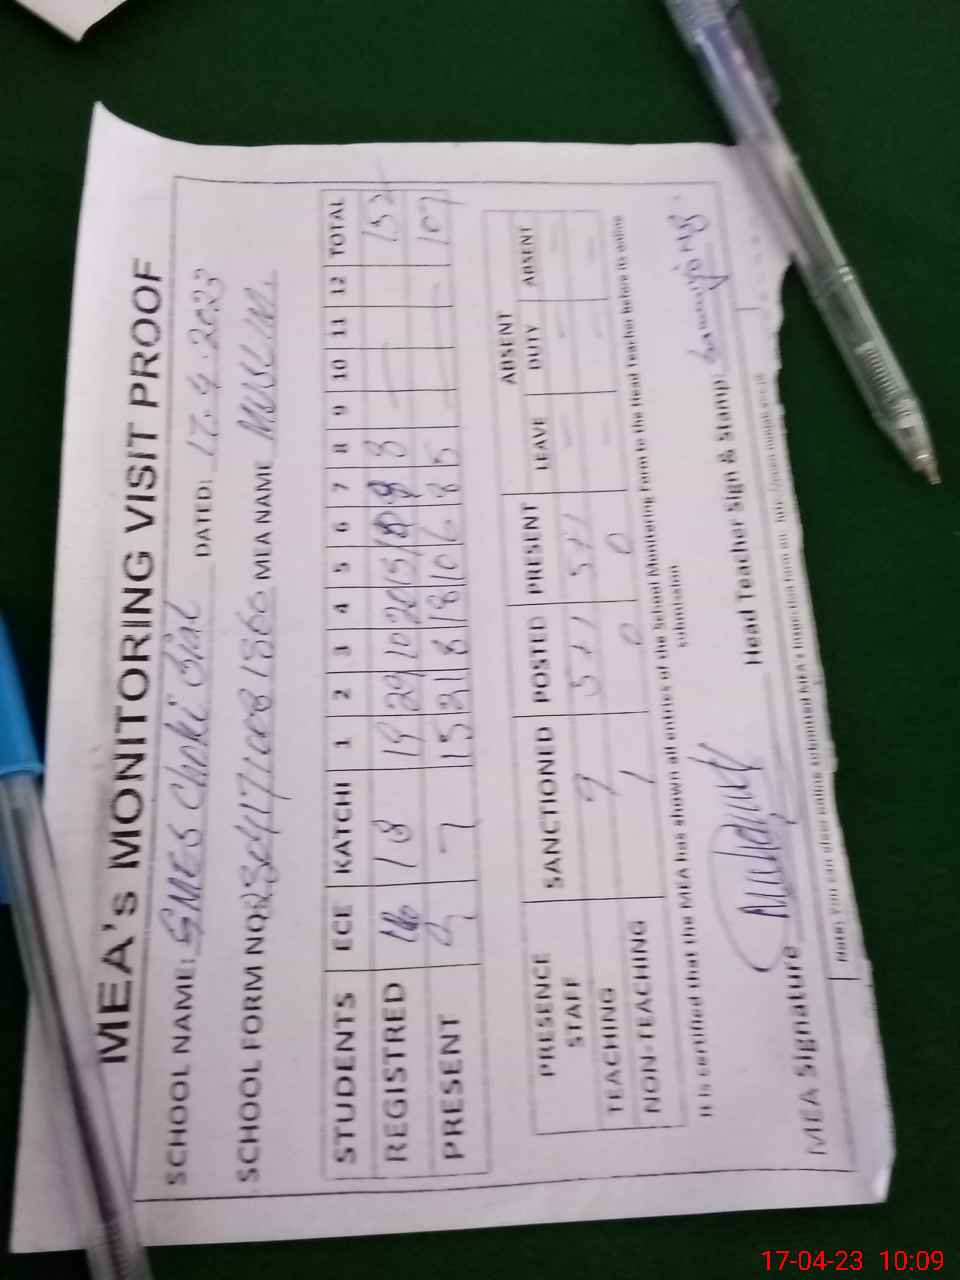 MEA's MONITORING VISIT PROOF
SCHOOL NAME: GMES Choki Bial DATED: 17.4.2023
SCHOOL FORM NO: MEA NAME MUSLIM.
STUDENTS ECE KATCHI 1 2 3 4 5 6 7 8 9 10 11 12 TOTAL
REGISTRED 18 19 29 10 20 15 8 8 152
PRESENT 7 15 21 8 18 10 6 8 5 107
ABSENT
PRESENCE STAFF SANCTIONED POSTED PRESENT LEAVE DUTY ABSENT
TEACHING 9 5+1 5+1 — — —
NON-TEACHING 1 0 0 — — —
It is certified that the MEA has shown all entries of the School Monitoring Form to the Head Teacher before its online
submission
MEA Signature Head Teacher Sign & Stamp:
Note: You can also online submitted MEA's Inspection form on
17-04-23 10:09